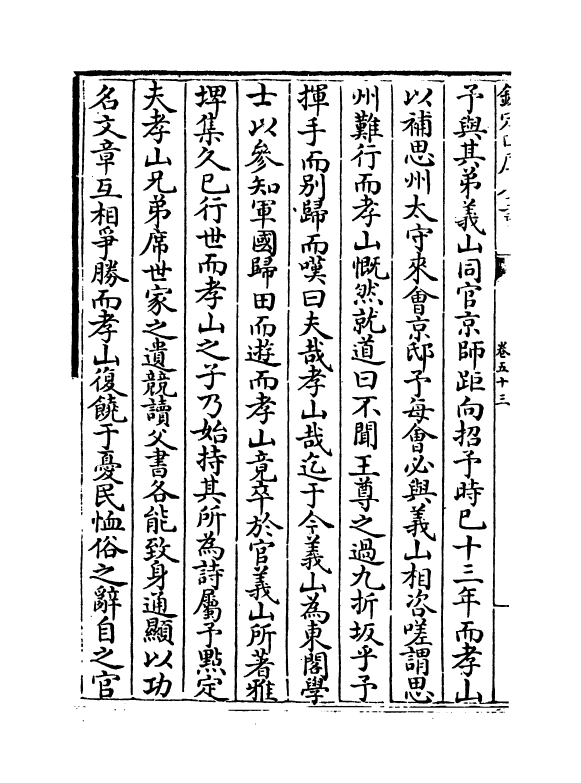 欽定四庫全書
卷五十三
予與其弟義山同官京師距向招予時已十三年而孝山
以補思州太守來會京邸予每會必與義山相咨嗟謂思
州難行而孝山慨然就道曰不聞王尊之過九折坂乎予
揮手而别歸而嘆曰夫哉孝山哉迄于今義山為東閣學
士以參知軍國歸田而遊而孝山竟卒於官義山所著雅
堺集久已行世而孝山之子乃始持其所為詩屬予點定
夫孝山兄弟席世家之遺競讀父書各能致身通顯以功
名文章互相爭勝而孝山復饒于憂民恤俗之辭自之官